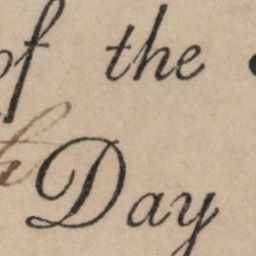 of the
Day